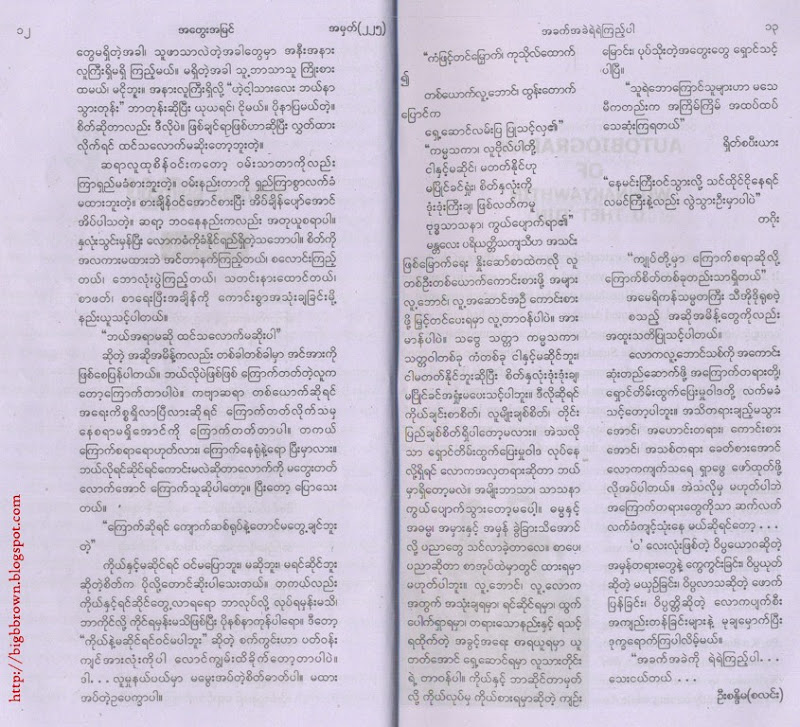 ၁၂ အတွေးအမြင် အမှတ်(၂၂၅)
တွေမရှိတဲ့အခါ၊ သူဖာသာလဲတဲ့အခါတွေမှာ အနီးအနား
လူကြီးရှိမရှိ ကြည့်မယ်။ မရှိတဲ့အခါ သူ့ဘာသာသူ ကြိုးစား
ထမယ်၊ မငိုဘူး။ အနားလူကြီးရှိလို့ “ဟဲ့ငါ့သားလေး ဘယ်နာ
သွားတုန်း” ဘာတုန်းဆိုပြီး ယုယရင်၊ ငိုမယ်။ ပိုနာပြမယ်တဲ့။
စိတ်ဆိုတာလည်း ဒီလိုပဲ။ ဖြစ်ချင်ရာဖြစ်ဟာဆိုပြီး လွှတ်ထား
လိုက်ရင် ထင်သလောက်မဆိုးတော့ဘူးတဲ့။
ဆရာလူထုစိန်ဝင်းကတော့ ဝမ်းသာတာကိုလည်း
ကြာရှည်မခံစားဘူးတဲ့။ ဝမ်းနည်းတာကို ရှည်ကြာစွာလက်ခံ
မထားဘူးတဲ့။ စားချိန်ဝင်အောင်စားပြီး အိပ်ချိန်ပျော်အောင်
အိပ်ပါသတဲ့။ ဆရာ့ ဘဝနေနည်းကလည်း အတုယူစရာပါ။
နှလုံးသွင်းမှန်ပြီး လောကဓံကိုခံနိုင်ရည်ရှိတဲ့သဘောပါ။ စိတ်ကို
အလကားမထားဘဲ အင်တာနက်ကြည့်တယ်၊ စလောင်းကြည့်
တယ်၊ ဘောလုံးပွဲကြည့်တယ်၊ သတင်းနားထောင်တယ်၊
စာဖတ်၊ စာရေးပြီးအချိန်ကို ကောင်းစွာအသုံးချခြင်းမို့
နည်းယူသင့်ပါတယ်။
“ဘယ်အရာမဆို ထင်သလောက်မဆိုးပါ”
ဆိုတဲ့ အဆိုအမိန့်ကလည်း တစ်ခါတစ်ခါမှာ အင်အားကို
ဖြစ်စေပြန်ပါတယ်။ ဘယ်လိုပဲဖြစ်ဖြစ် ကြောက်တတ်တဲ့လူက
တော့ကြောက်တာပါပဲ။ ကဗျာဆရာ တစ်ယောက်ဆိုရင်
အရေးကိစ္စရှိလာပြီလားဆိုရင် ကြောက်တတ်လိုက်သမှ
နေစရာမရှိအောင်ကို ကြောက်တတ်တာပါ။ တကယ်
ကြောက်စရာရောဟုတ်လား၊ ကြောက်နေရုံနဲ့ရော ပြီးမှာလား။
ဘယ်လိုရင်ဆိုင်ရင်ကောင်းမလဲဆိုတာလောက်ကို မတွေးတတ်
လောက်အောင် ကြောက်သူဆိုပါတော့။ ပြီးတော့ ပြောသေး
တယ်။
“ကြောက်ဆိုရင် ကျောက်ဆစ်ရုပ်နဲ့တောင်မတွေ့ချင်ဘူး
တဲ့”
ကိုယ်နှင့်မဆိုင်ရင် ဝင်မပြောဘူး၊ မဆိုဘူး၊ မရင်ဆိုင်ဘူး
ဆိုတဲ့စိတ်က ပိုလို့တောင်ဆိုးပါသေးတယ်။ တကယ်လည်း
ကိုယ်နှင့်ရင်ဆိုင်တွေ့လာရရော ဘာလုပ်လို့ လုပ်ရမှန်းမသိ၊
ဘာကိုင်လို့ ကိုင်ရမှန်းမသိဖြစ်ပြီး ပိုနစ်နာတုန်ပါရော။ ဒီတော့
“ကိုယ်နဲ့မဆိုင်ရင်ဝင်မပါဘူး” ဆိုတဲ့ စက်ကွင်းဟာ ပတ်ဝန်း
ကျင်အားလုံးကိုပါ လောင်ကျွမ်းထိခိုက်တော့တာပါပဲ။
ဒါ... လူမှုနယ်ပယ်မှာ မမွေးအပ်တဲ့စိတ်ဓာတ်ပါ။ မထား
အပ်တဲ့ဥပေက္ခာပါ။
အခက်အခဲရဲရဲကြည့်ပါ ၁၃
“ကံဖြင့်တင်မြှောက်၊ ကုသိုလ်ထောက်
၍
တစ်ယောက်လူ့ဘောင်၊ ထွန်းတောက်
ပြောင်က
ရှေ့ဆောင်လမ်းပြ ပြုသင့်လှ၏”
“ကမ္မသကာ၊ လူပိုလ်ပါတို့
ငါနှင့်မဆိုင်၊ မတတ်နိုင်ဟု
မပြိုင်ခင်ရှုံး၊ စိတ်နှလုံးကို
ဒုံးဒုံးကြီးချ၊ ဖြစ်လတ်ကမူ
ဗုဒ္ဓသာသနာ၊ ကွယ်ပျောက်ရာ၏”
မန္တလေး ပရိယတ္တိသာကျသီဟ အသင်း
ဖြစ်မြောက်ရေး နှိုးဆော်စာထဲကလို လူ
တစ်ဦးတစ်ယောက်ကောင်းစားဖို့ အများ
လူ့ဘောင်၊ လူ့အဆောင်အဦ ကောင်းစား
ဖို့ မြှင့်တင်ပေးရမှာ လူ့တာဝန်ပါပဲ။ အား
မာန်ပါပဲ။ သဗ္ဗေ သတ္တာ ကမ္မသကာ၊
သတ္တဝါတစ်ခု ကံတစ်ခု ငါနှင့်မဆိုင်ဘူး၊
ငါမတတ်နိုင်ဘူးဆိုပြီး စိတ်နှလုံးဒုံးဒုံးချ၊
မပြိုင်ခင်အရှုံးမပေးသင့်ပါဘူး။ ဒီလိုဆိုရင်
ကိုယ်ချင်းစာစိတ်၊ လူမျိုးချစ်စိတ်၊ တိုင်း
ပြည်ချစ်စိတ်ရှိပါတော့မလား။ အဲသလို
သာ ရှောင်တိမ်းထွက်ပြေးမှုဝါဒ လုပ်နေ
လို့ရှိရင် လောကအလှတရားဆိုတာ ဘယ်
မှာရှိတော့မလဲ။ အမျိုးဘာသာ၊ သာသနာ
ကွယ်ပျောက်သွားတော့မပေါ့။ ဓမ္မနှင့်
အဓမ္မ၊ အမှားနှင့် အမှန် ခွဲခြားသိအောင်
လို့ ပညာတွေ သင်လာခဲ့တာလေ။ စာပေ၊
ပညာဆိုတာ စာအုပ်ထဲမှာတွင် ထားရမှာ
မဟုတ်ပါဘူး။ လူ့ဘောင်၊ လူ့လောက
အတွက် အသုံးချရမှာ၊ ရင်ဆိုင်ရမှာ၊ ထွက်
ပေါက်ရှာရမှာ၊ တရားသောနည်းနှင့် ရသင့်
ရထိုက်တဲ့ အခွင့်အရေး စာရယူရမှာ ယူ
တတ်အောင် ရှေ့ဆောင်ရမှာ လူသားတိုင်း
ရဲ့ တာဝန်ပါ။ ကိုယ်နှင့် ဘာဆိုင်တာမှတ်
လို့ ကိုယ်လုပ်မှ ကိုယ်စားရမှာဆိုတဲ့ ကျဉ်း
မြောင်း၊ ပုပ်သိုးတဲ့အတွေးတွေ ရှောင်သင့်
ပါပြီ။
“သူရဲဘောကြောင်သူများဟာ မသေ
မီကတည်းက အကြိမ်ကြိမ် အထပ်ထပ်
သေဆုံးကြရတယ်”
ရှိတ်စပီးယား
“နေမင်းကြီးဝင်သွားလို့ သင်ထိုင်ငိုနေရင်
လမင်ကြီးနဲ့လည်း လွဲသွားဦးမှာပါပဲ”
တဂိုး
“ကျုပ်တို့မှာ ကြောက်စရာဆိုလို့
ကြောက်စိတ်တစ်ခုတည်းသာရှိတယ်”
အမေရိကန်သမ္မတကြီး သီအိုဒိုရုစဗဲ့
စသည့် အဆိုအမိန့်တွေကိုလည်း
အထူးသတိပြုသင့်ပါတယ်။
လောကလူ့ဘောင်သစ်ကို အကောင်း
ဆုံးတည်ဆောက်ဖို့ အကြောက်တရားတို့၊
ရှောင်တိမ်းထွက်ပြေးမှုဝါဒတို့ လက်မခံ
သင့်တော့ပါဘူး။ အသိတရားချည့်မသွား
အောင်၊ အဟောင်းတရား၊ ကောင်းစား
အောင်၊ အသစ်တရား ခေတ်စားအောင်
လောကကျက်သရေ ရှာဖွေ ဖော်ထုတ်ဖို့
လိုအပ်ပါတယ်။ အဲသလိုမှ မဟုတ်ပါဘဲ
အကြောက်တရားတွေကိုသာ ဆက်လက်
လက်ခံကျင့်သုံးနေ မယ်ဆိုရင်တော့ ...
‘ဝ’ လေးလုံးဖြစ်တဲ့ ဝိပ္ပယောဂဆိုတဲ့
အမှန်တရားတွေနဲ့ ကွေကွင်းခြင်း၊ ဝိပ္ပယုတ်
ဆိုတဲ့ မယှဉ်ခြင်း၊ ဝိပ္ပလာသဆိုတဲ့ ဖောက်
ပြန်ခြင်း၊ ဝိပ္ပတ္တိဆိုတဲ့ လောကပျက်စီး
အကျည်းတန်ခြင်းများနဲ့ မုချမကွေဘဲပြီး
ဒုက္ခရောက်ကြပါလိမ့်မယ်။
“အခက်အခဲကို ရဲရဲကြည့်ပါ...
သေးငယ်တယ် ...
ဦးစန္ဒိမ(စလင်း)
http://bigbbrown.blogspot.com